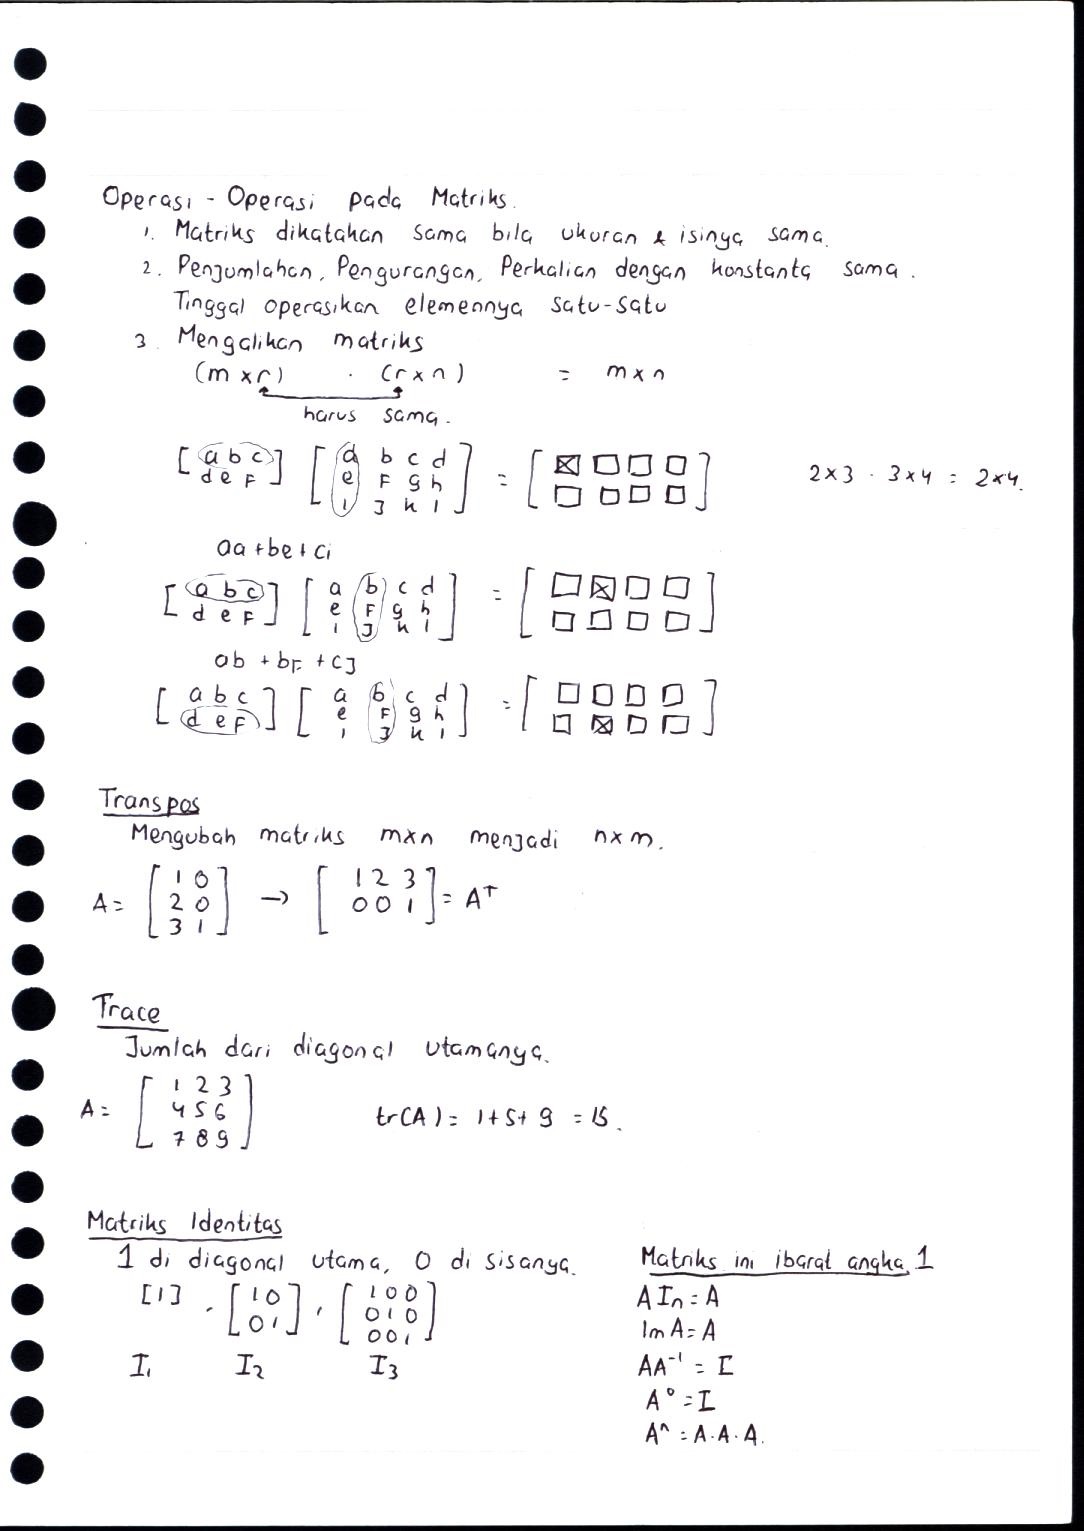 Operasi - Operasi pada Matriks.
1. Matriks dikatakan sama bila ukuran & isinya sama.
2. Penjumlahan, Pengurangan, Perkalian dengan konstanta sama.
Tinggal operasikan elemennya satu-satu
3. Mengalikan matriks
(m x r) . (r x n) = m x n
harus sama.
[ a b c ] [ a b c d ] = [ ☒ □ □ □ ] 2x3 . 3x4 = 2x4.
[ d e F ] [ e F g h ] [ □ □ □ □ ]
[ i J k l ]
aa + be + ci
[ a b c ] [ a b c d ] = [ □ ☒ □ □ ]
[ d e F ] [ e F g h ] [ □ □ □ □ ]
[ i J k l ]
ab + bF + cJ
[ a b c ] [ a b c d ] = [ □ □ □ □ ]
[ d e F ] [ e F g h ] [ □ ☒ □ □ ]
[ i J k l ]
Transpos
Mengubah matriks mxn menjadi nxm.
A = [ 1 0 ] → [ 1 2 3 ] = Aᵀ
[ 2 0 ] [ 0 0 1 ]
[ 3 1 ]
Trace
Jumlah dari diagonal utamanya.
A = [ 1 2 3 ]
[ 4 5 6 ] tr(A) = 1+5+9 = 15.
[ 7 8 9 ]
Matriks Identitas
1 di diagonal utama, 0 di sisanya.
[1] , [ 1 0 ] , [ 1 0 0 ]
[ 0 1 ] [ 0 1 0 ]
[ 0 0 1 ]
I₁ I₂ I₃
Matriks ini ibarat angka 1
A Iₙ = A
Im A = A
AA⁻¹ = I
A⁰ = I
Aⁿ = A.A.A.